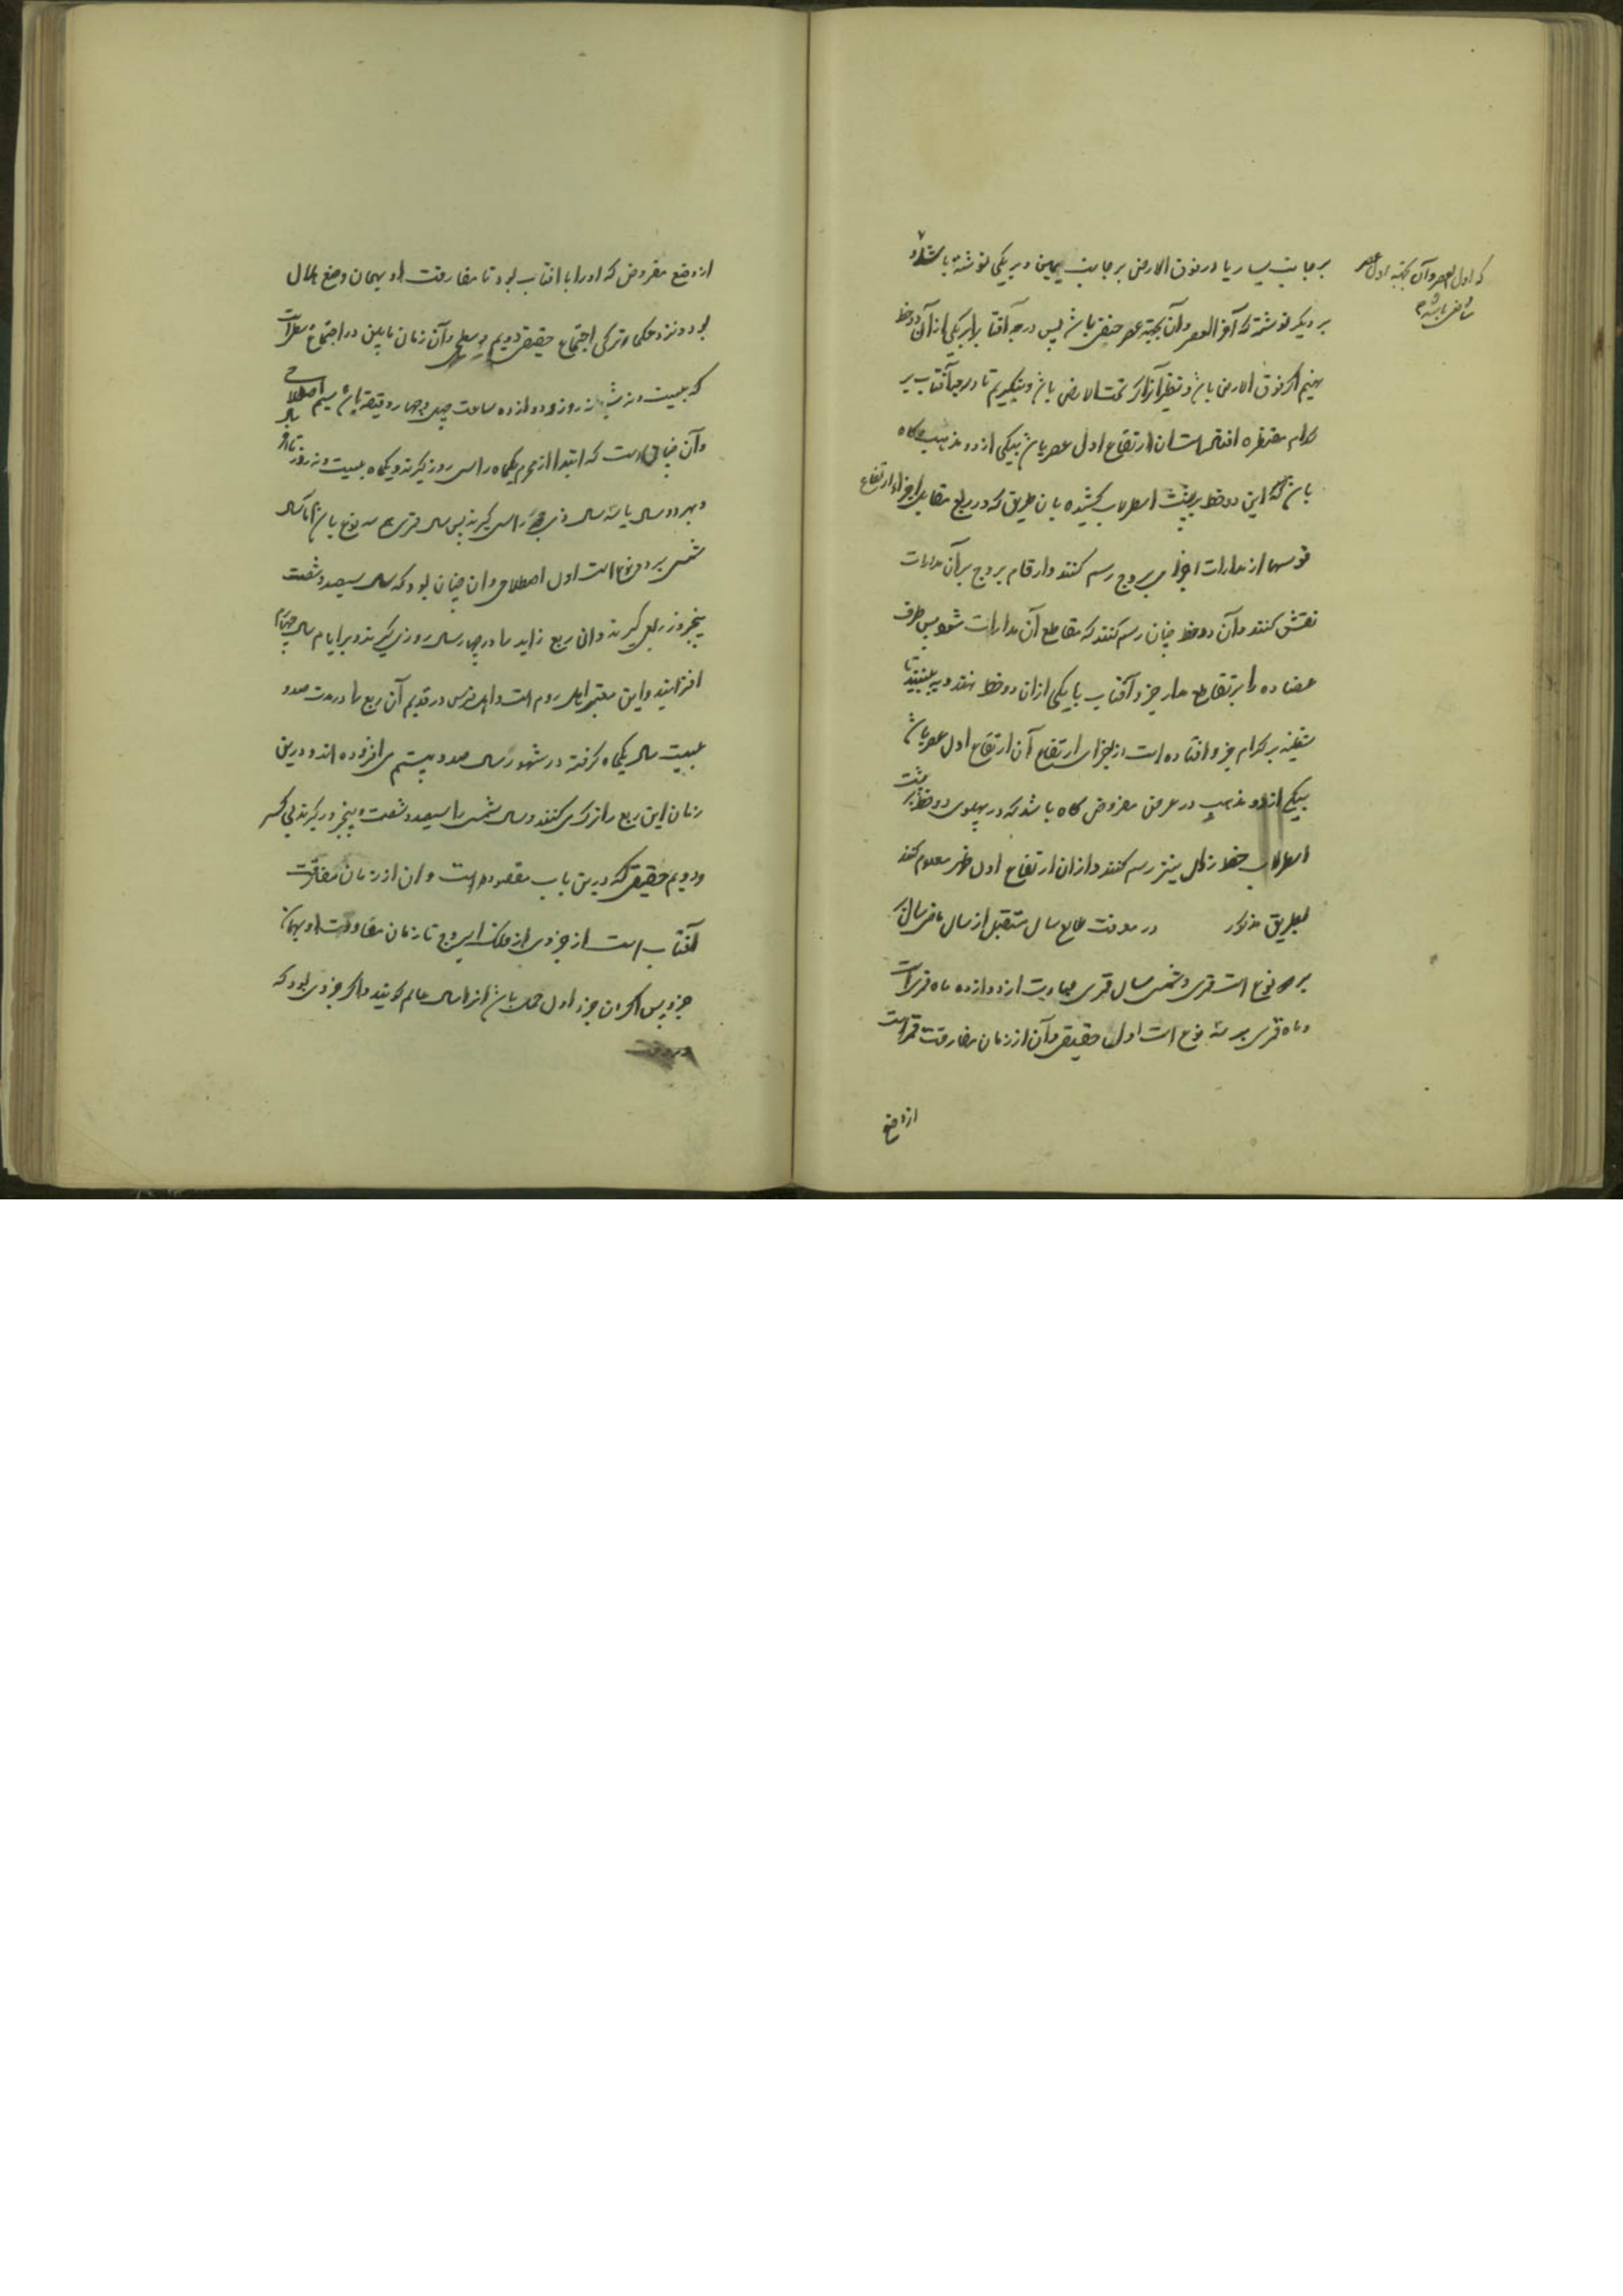 بر جانب یسار یا در فوق الارض بر جانب یمین و بر یکی نوشته باشد
که اول العصر و آن بجهته اول عصر
شافعی باشد
بر دیگر نوشته که آخر العصر و آن بجهته عصر حنفی باش پس درجه آفتاب را بر یکی از آن دو خط
نهیم اگر فوق الارض باش و نظیر آنرا اگر تحت الارض باش و بنگریم تا درجه آفتاب بر
کدام مقنطره افتاده است آن ارتفاع اول عصر باش بیکی از دو مذهب و گاه
باش که این دو خط بر پشت اسطرلاب کشیده بان طریق که در ربع مقابل اجزاء ارتفاع
قوسها از مدارات اجزای بروج رسم کنند و ارقام بروج بر آن مدارات
نقش کنند و آن دو خط چنان رسم کنند که مقاطع آن مدارات شود پس طرف
عضاده را بر تقاطع مدار جزو آفتاب با یکی از ان دو خط نهند و به بینند تا
شظیه بر کدام جزو افتاده است از اجزای ارتفاع آن ارتفاع اول عصر باش
بیکی از دو مذهب در عرض مفروض گاه باشد که در پهلوی دو خط بر پشت
اسطرلاب خط زوال نیز رسم کنند و ازان ارتفاع اول ظهر معلوم کنند
بطریق مذکور در معرفت طالع سال مستقبل از سال ماضی سال
بر دو نوع است قمری و شمسی سال قمری عبارت از دوازده ماه قمری است
و ماه قمری بر سه نوع است اول حقیقی و آن از زمان مفارقت قمر است
از وضع
از وضع مفروض که او را با افتاب بود تا مفارقت او بهمان وضع هلال
بود و نزد حکماء ترک اجتماع حقیقی دویم وسطی و آن زمان مابین دو اجتماع وسط است
که بیست و نه شبانه روز و دوازده ساعت و چهل و چهار دقیقه باش سیم اصطلاحی
و آن چنان است که ابتدا از محرم یکماه را سی روز گیرند و یکماه بیست و نه روز تا آخر سال
و بهر دو سال یا سه سال ذی حجه را سی گیرند پس سال قمری هم سه نوع باش اما سال
شمسی بر دو نوع است اول اصطلاحی و ان چنان بود که سال سیصد و شصت
پنجروز و ربعی گیرند و ان ربع زاید را در چهار سال روزی گیرند و بر ایام سال چهارم
افزایند و این معتبر اهل روم است و اهل فرس در قدیم آن ربع را در مدت صد و
بیست سال یکماه گرفته در شهور سال صد و بیستم می افزوده اند و درین
زمان این ربع را ترک می کنند و سال شمسی را سیصد و شصت و پنج روز گیرند بی کسر
و دویم حقیقی که درین باب مقصود است و ان از زمان مفارقت
آفتاب است از جزوی از فلک البروج تا زمان معاودت او بهمان
جزو پس اگر ان جزء اول حمل باش انرا سال عالم گویند و اگر جزوی بود که